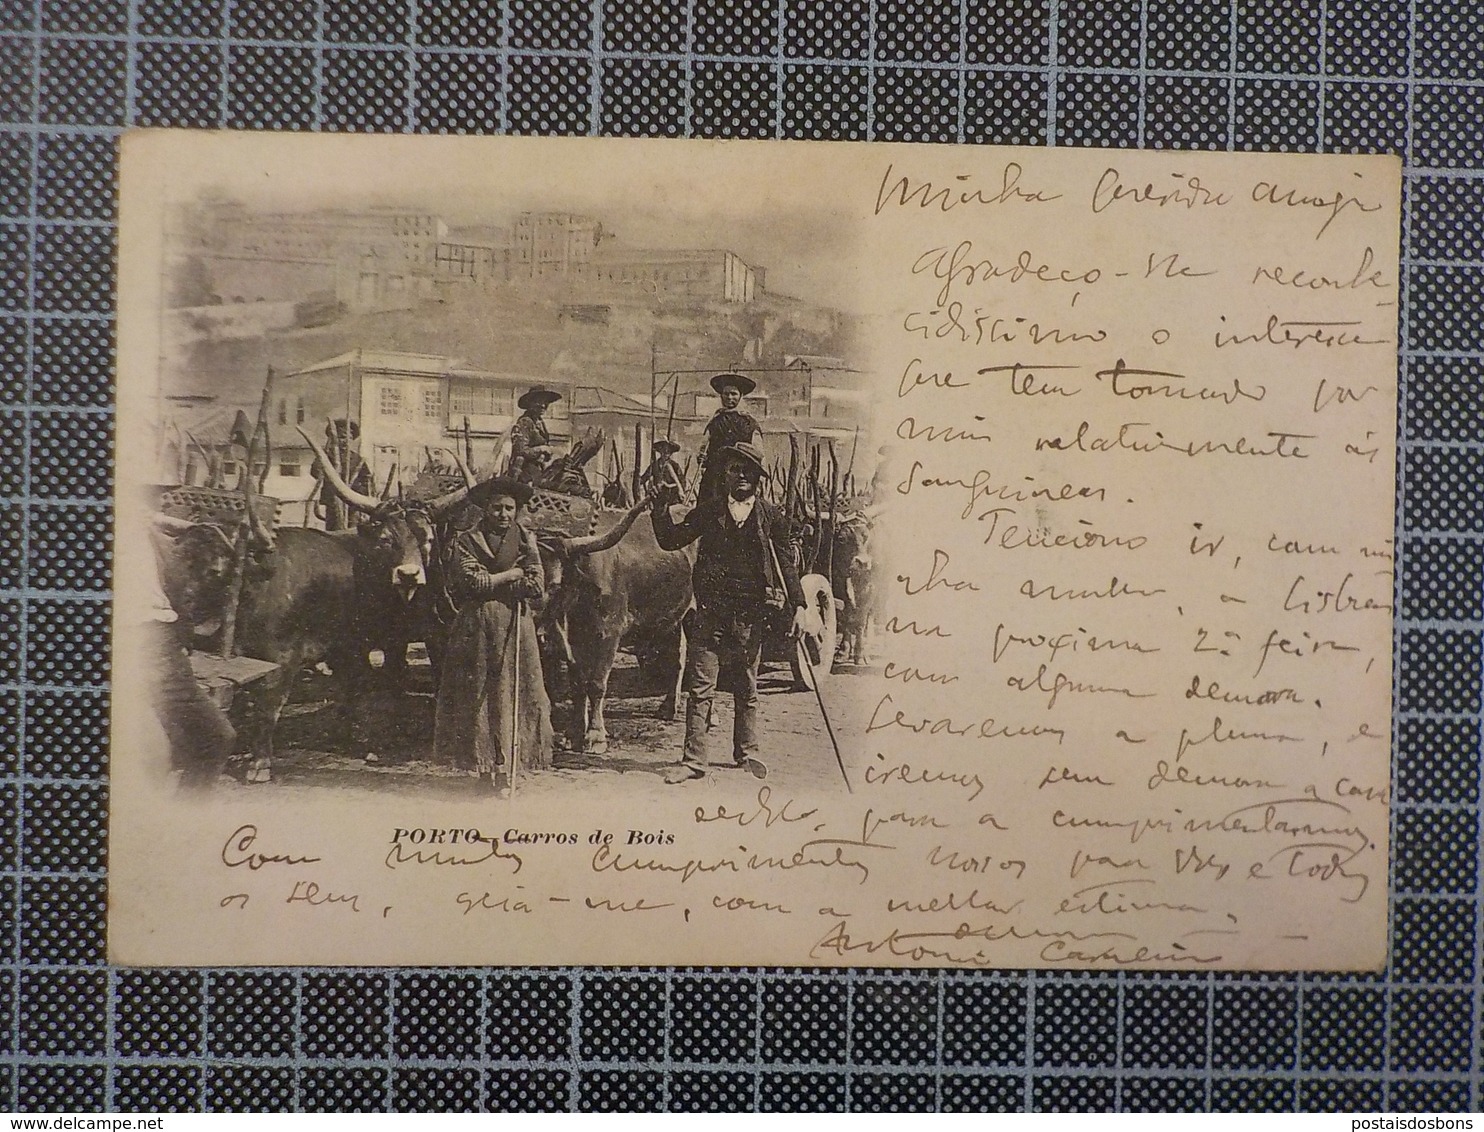 Minha querida amiga
Agradeço-lhe reconhe-
cidissimo o interesse
que tem tomado por
mim relativamente às
sanguineas.
Tenciono ir, com mi
nha mulher, a Lisboa
na proxima 2ª feira,
com alguma demora.
Levaremos a pluma, e
iremos sem demora a casa
para a cumprimentarmos.
PORTO—Carros de Bois
Com muitos cumprimentos nossos para e todos
os seus, creia-me, com a melhor estima,
Antonio
© www.delcampe.net
postaisdosbons